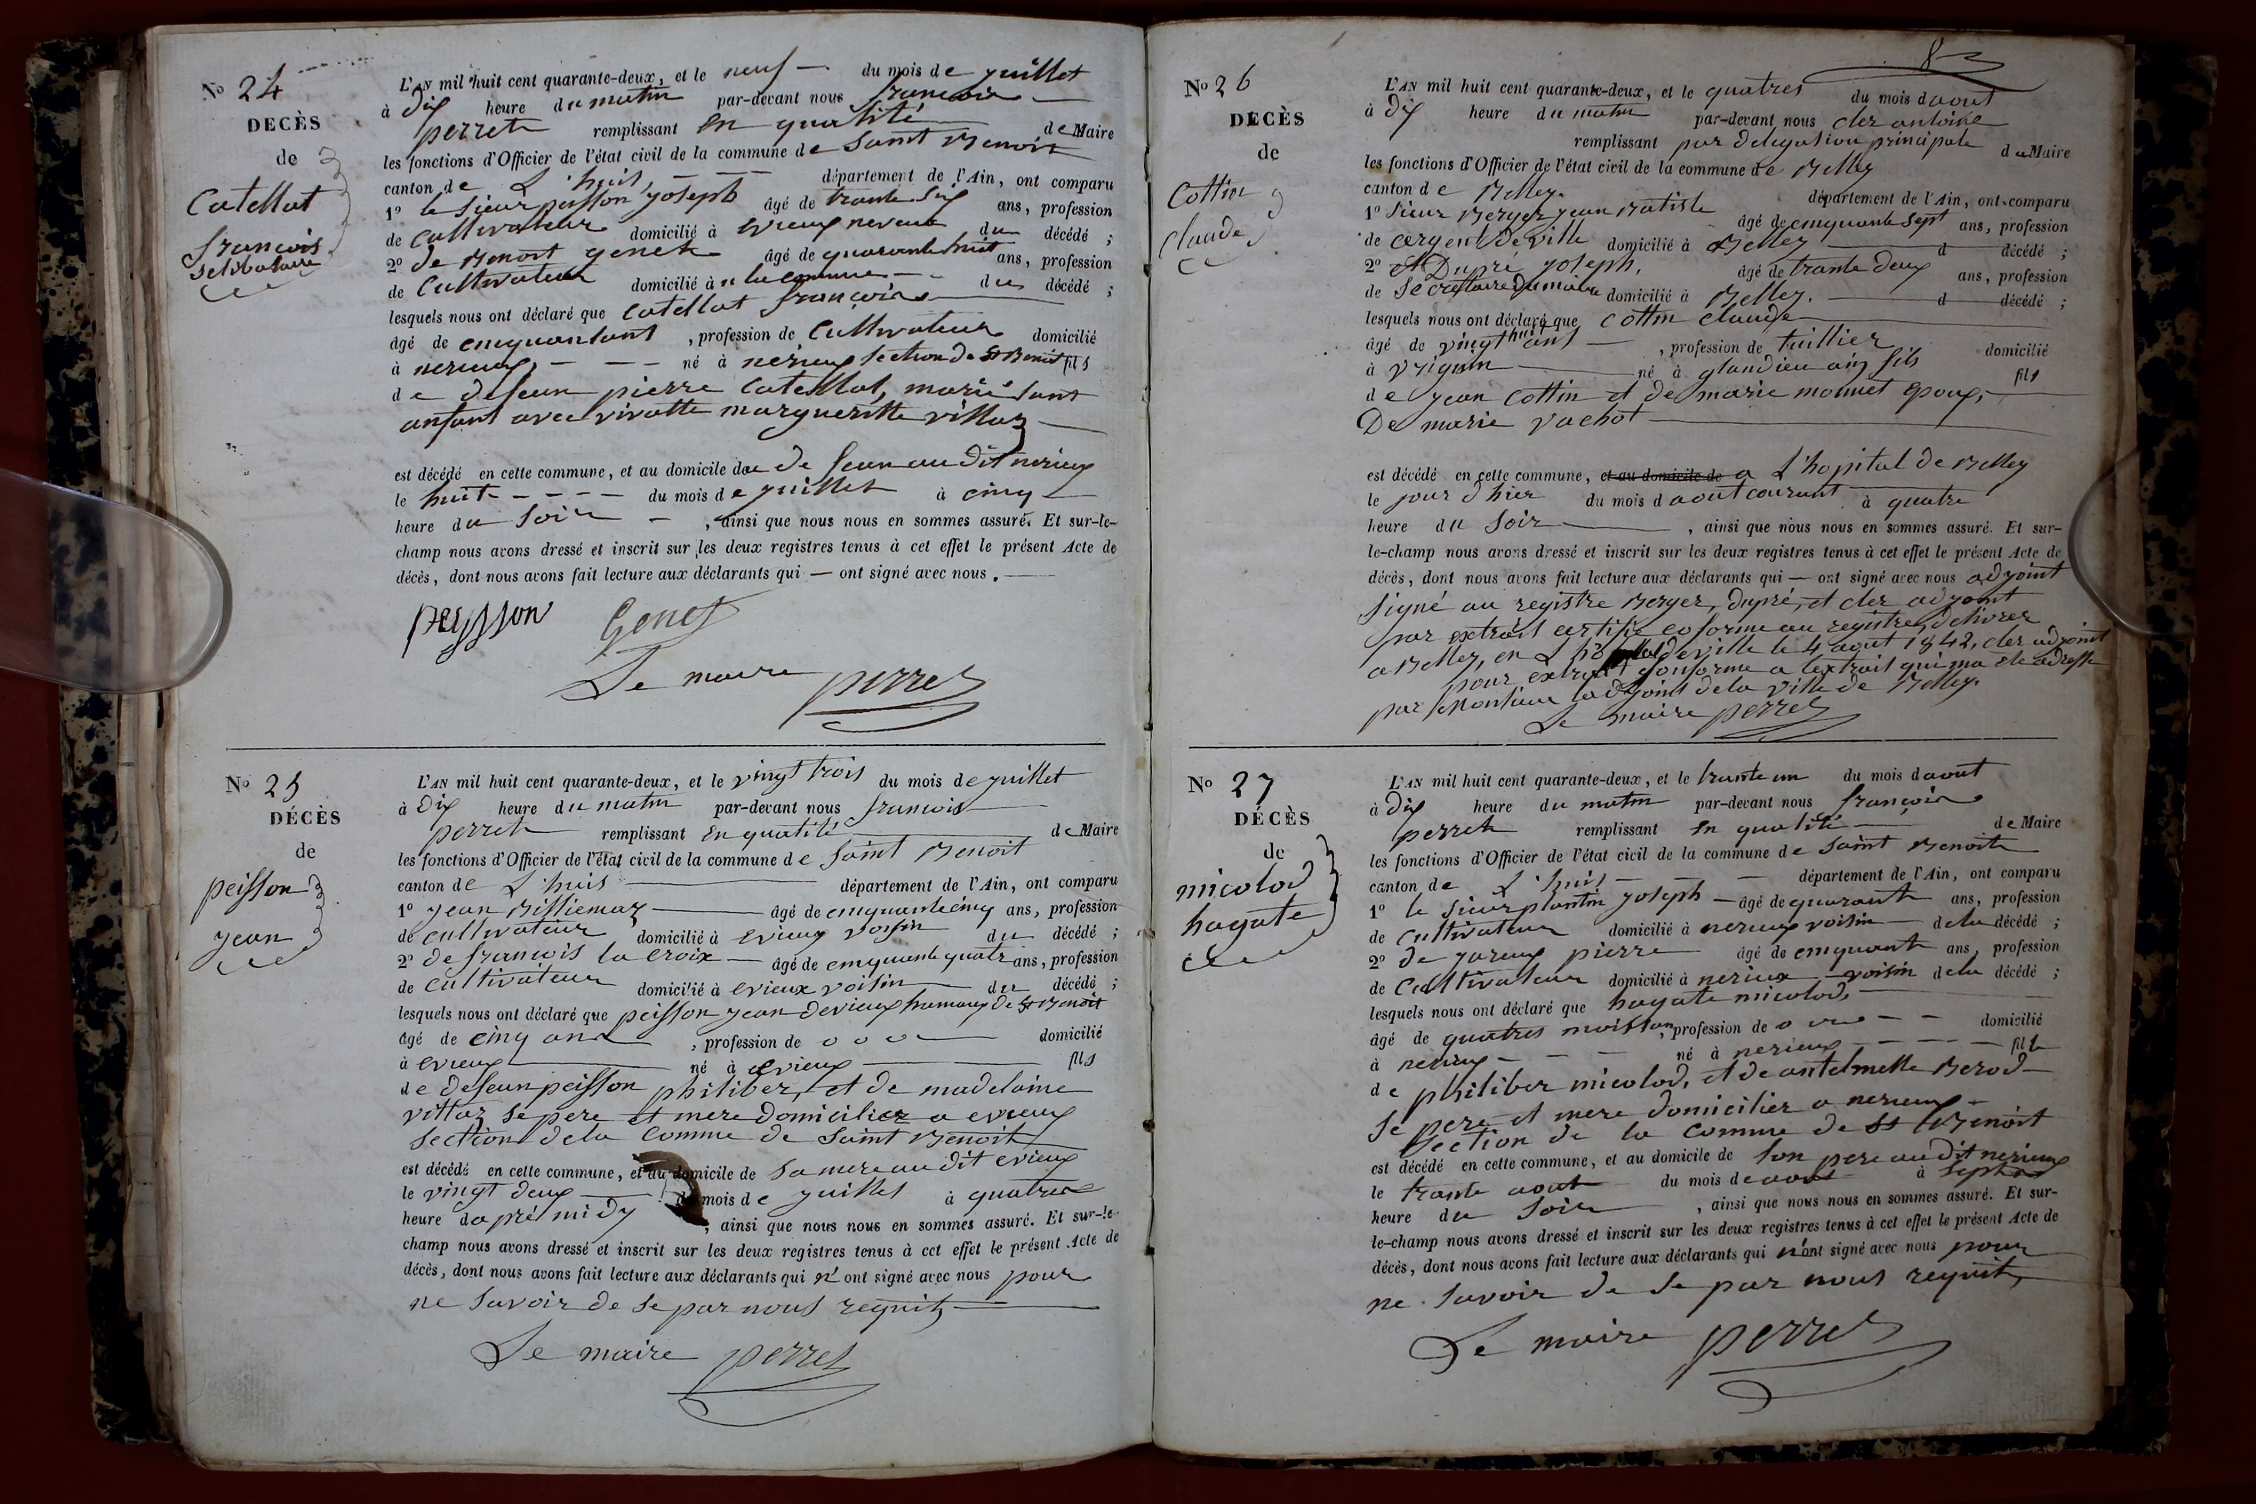 No 24
DECÈS
de
Catellat
francois
L'AN mil huit cent quarante-deux, et le neuf du mois de juillet
à Dix heure du matin par-devant nous francois
perret remplissant en qualité de Maire
les fonctions d'Officier de l'état civil de la commune de Saint Benoit
canton de L'huis département de l'Ain, ont comparu
1o le Sieur peisson joseph âgé de trante Six ans, profession
de Cultivateur domicilié à Evieux neveux du décédé ;
2o de Benoit genet âgé de quarante huit ans, profession
de Cultivateur domicilié à la commune du décédé ;
lesquels nous ont déclaré que Catellat françois
âgé de cinquante ans, profession de Cultivateur domicilié
à nerieux né à nerieux Section de St Benoit fils
de defeun pierre Catellat, marié Sans
anfant avec vivatte margueritte villaz
est décédé en cette commune, et au domicile du de feun au dit nerieux
le huit du mois de juillet à cinq
heure du Soir, ainsi que nous nous en sommes assuré. Et sur-le-
champ nous avons dressé et inscrit sur les deux registres tenus à cet effet le présent Acte de
décès, dont nous avons fait lecture aux déclarants qui — ont signé avec nous.
peysson Genet
Le maire perret
No 25
DÉCÈS
de
peisson
jean
L'AN mil huit cent quarante-deux, et le vingt trois du mois de juillet
à Dix heure du matin par-devant nous francois
perret remplissant en qualité de Maire
les fonctions d'Officier de l'état civil de la commune de Saint Benoit
canton de L'huis département de l'Ain, ont comparu
1o jean Billiemaz âgé de cinquante cinq ans, profession
de cultivateur domicilié à evieux voisin du décédé ;
2o de francois la croix âgé de cinquante quatre ans, profession
de cultivateur domicilié à evieux voisin du décédé ;
lesquels nous ont déclaré que peisson jean devieux hamaux de St Benoit
âgé de cinq ans, profession de o o o domicilié
à evieux né à evieux fils
de defeun peisson philiber, et de madelaine
vittoz Se pere et mere Domicilier a evieux
Section dela Comme de Saint Benoit
est décédé en cette commune, et au domicile de Sa mere au dit evieux
le vingt deux du mois de juillet à quatres
heure d apré midy, ainsi que nous nous en sommes assuré. Et sur-le-
champ nous avons dressé et inscrit sur les deux registres tenus à cet effet le présent Acte de
décès, dont nous avons fait lecture aux déclarants qui n'ont signé avec nous pour
ne Savoir de Se par nous requit
Le maire perret
8
No 26
DECÈS
de
Cottin
claude
L'AN mil huit cent quarante-deux, et le quatres du mois d aout
à Dix heure du matin par-devant nous cler antoine
remplissant par delegation principale du Maire
les fonctions d'Officier de l'état civil de la commune de Belley
canton de Belley département de l'Ain, ont comparu
1o Sieur Berger jean Batiste âgé de cinquante Sept ans, profession
de cergent Deville domicilié à Belley d décédé ;
2o et Dupré joseph, âgé de trante deux ans, profession
de Secrettaire du maire domicilié à Belley. d décédé ;
lesquels nous ont déclaré que Cottin Claude
âgé de vingt huit ans, profession de tuillier domicilié
à vrignin né à glandieu ain fils fils
de jean Cottin et de marie monnet epoux,
De marie vachot
est décédé en cette commune, et au domicile de a L'hopital de Belley
le jour d'hier du mois d aout courant à quatre
heure du Soir, ainsi que nous nous en sommes assuré. Et sur-
le-champ nous avons dressé et inscrit sur les deux registres tenus à cet effet le présent Acte de
décès, dont nous avons fait lecture aux déclarants qui — ont signé avec nous adjoint
Signé au registre Berger, dupré, et cler adjoint
par extrait certifié coforme au registre, delivrer
a Belley, en L'hotel deville le 4 aout 1842, cler adjoint
pour extrait conforme a lextrait qui ma été adressé
par Monsieur ladjoint dela ville de Belley.
Le maire perret
No 27
DÉCÈS
de
micolod
hagate
L'AN mil huit cent quarante-deux, et le trante un du mois d aout
à Dix heure du matin par-devant nous françois
perret remplissant en qualité de Maire
les fonctions d'Officier de l'état civil de la commune de Saint Benoit
canton de L'huis département de l'Ain, ont comparu
1o le Sieur plantin joseph âgé de quarante ans, profession
de Cultivateur domicilié à nerieux voisin dela décédé ;
2o de jareux pierre âgé de cinquante ans, profession
de Cultivateur domicilié à nerieux voisin dela décédé ;
lesquels nous ont déclaré que hagate micolod,
âgé de quatres mois, profession de domicilié
à nerieux né à nerieux fille
de philiber micolod, et de antelmette Berod
Se pere et mere domicilier a nerieux
Section de la Comme de St Benoit
est décédé en cette commune, et au domicile de Son pere au dit nerieux
le trante aout du mois de aout à Sept
heure du Soir, ainsi que nous nous en sommes assuré. Et sur-
le-champ nous avons dressé et inscrit sur les deux registres tenus à cet effet le présent Acte de
décès, dont nous avons fait lecture aux déclarants qui n'ont signé avec nous pour
ne Savoir de Se par nous requit,
Le maire perret